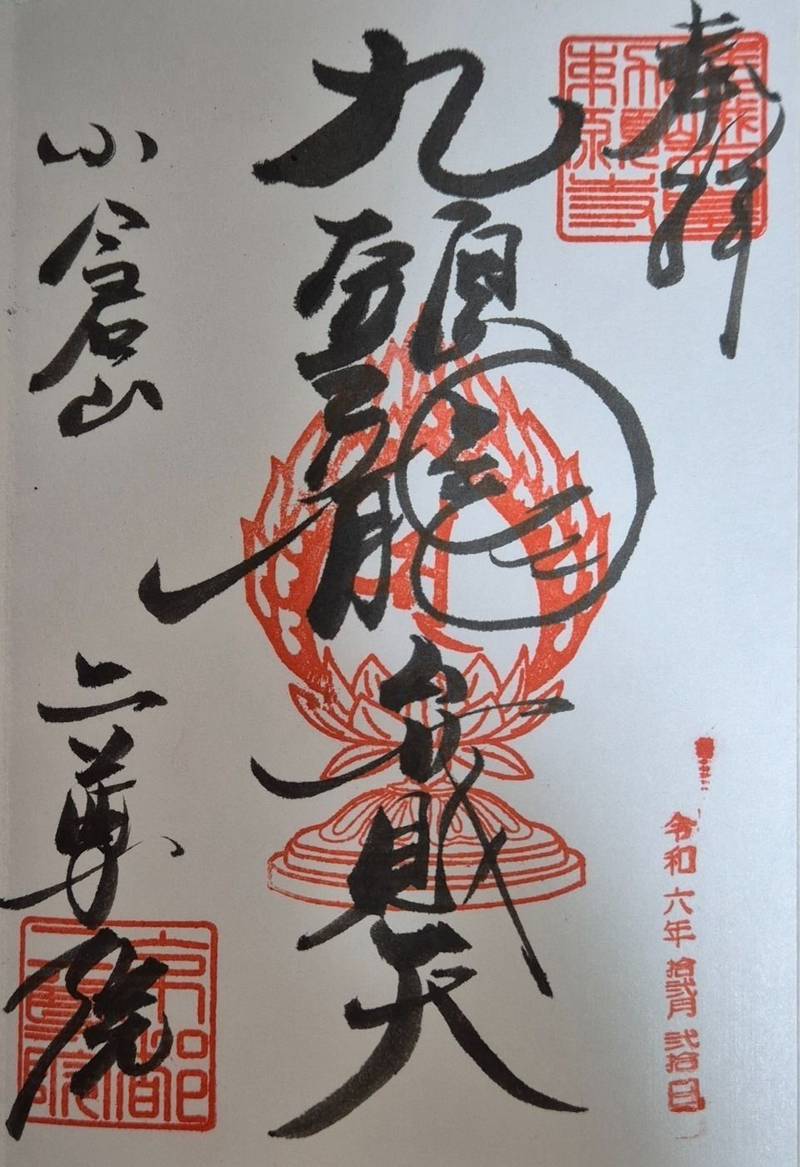 奉拝
九頭龍弁財天
小倉山
二尊院
京都
二尊院
令和六年拾弐月弐拾日